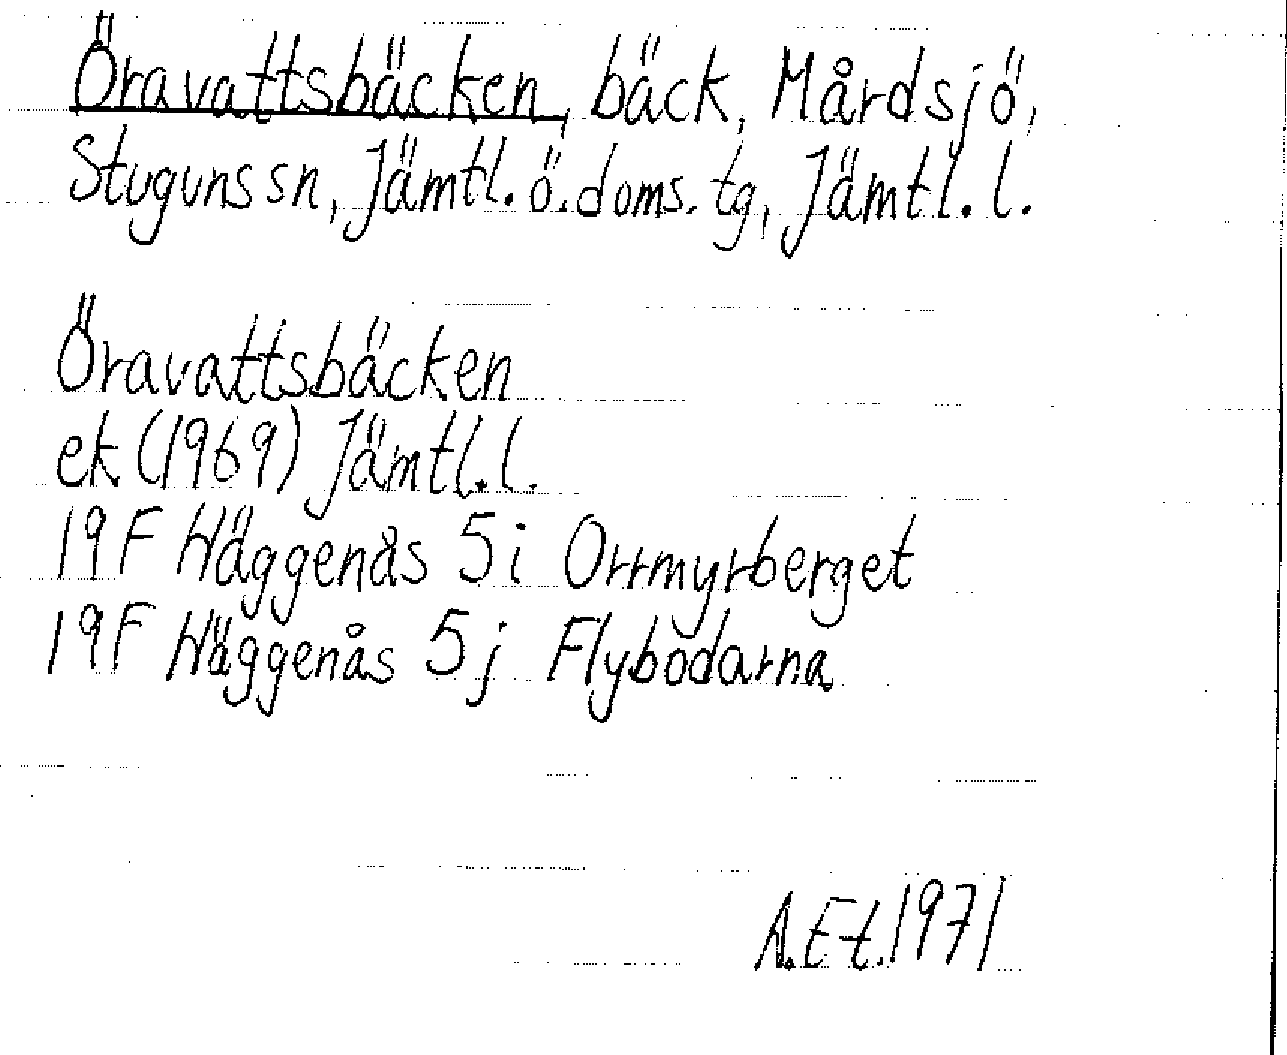 Öravattsbäcken, bäck, Mårdsjö,
Stuguns sn, Jämtl. ö. doms. tg, Jämtl. l.
Öravattsbäcken
ek (1969) Jämtl. l.
19F Häggenås 5i Orrmyrberget
19F Häggenås 5j Flybodarna
A. Et. 1971